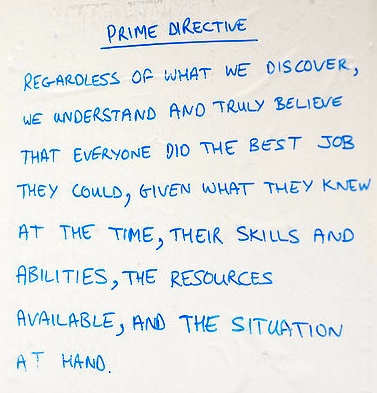 PRIME DIRECTIVE
REGARDLESS OF WHAT WE DISCOVER,
WE UNDERSTAND AND TRULY BELIEVE
THAT EVERYONE DID THE BEST JOB
THEY COULD, GIVEN WHAT THEY KNEW
AT THE TIME, THEIR SKILLS AND
ABILITIES, THE RESOURCES
AVAILABLE, AND THE SITUATION
AT HAND.